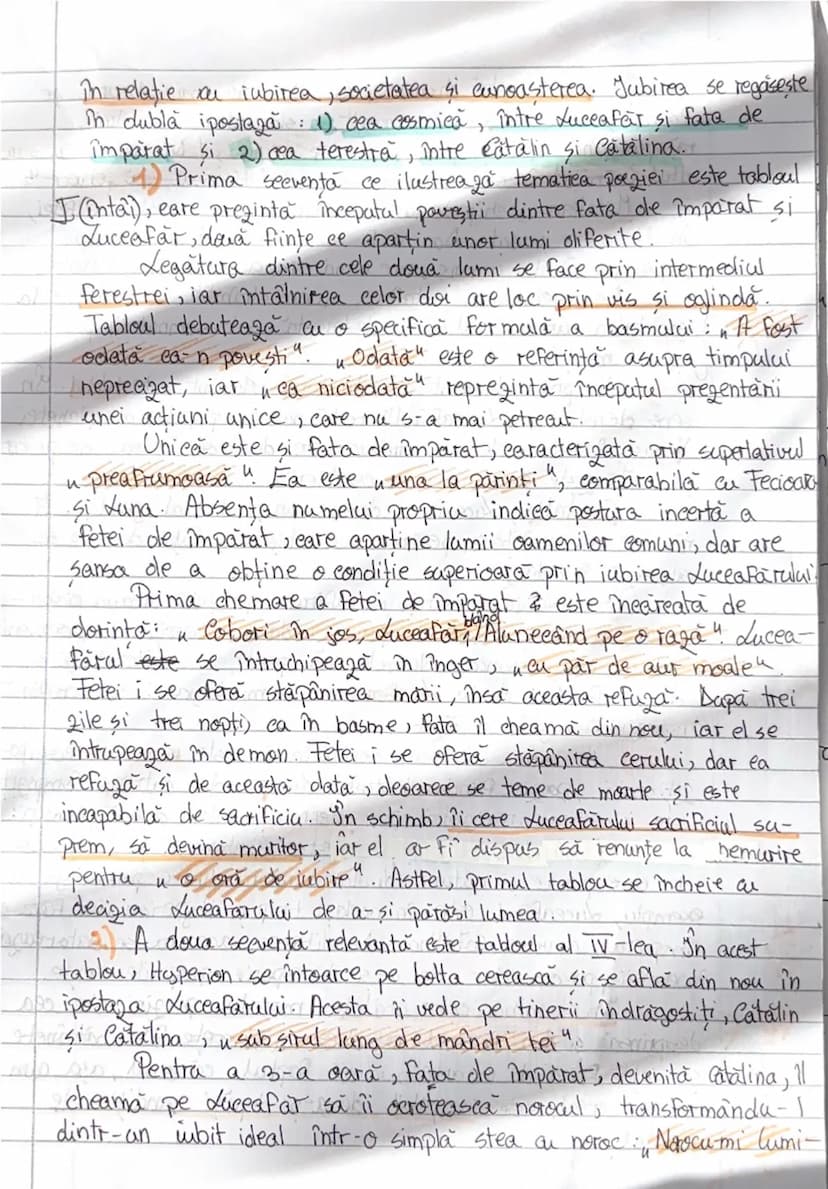 în relație cu iubirea, societatea și cunoașterea. Iubirea se regăsește
în dublă ipostază : 1) cea cosmică, între Luceafăr și fata de
împărat și 2) cea terestră, între Cătălin și Cătălina.
1) Prima secvență ce ilustrează tematica poeziei este tabloul
I (întâi), care prezintă începutul poveștii dintre fata de împărat și
Luceafăr, două ființe ce aparțin unor lumi diferite.
Legătura dintre cele două lumi se face prin intermediul
ferestrei, iar întâlnirea celor doi are loc prin vis și oglindă.
Tabloul debutează cu o specifică formulă a basmului : „A fost
odată ca-n povești". „Odată" este o referință asupra timpului
neprecizat, iar „ca niciodată" reprezintă începutul prezentării
unei acțiuni unice, care nu s-a mai petrecut.
Unică este și fata de împărat, caracterizată prin superlativul
„preafrumoasă". Ea este „una la părinți", comparabilă cu Fecioara
și Luna. Absența numelui propriu indică postura incertă a
fetei de împărat, care aparține lumii oamenilor comuni, dar are
șansa de a obține o condiție superioară prin iubirea Luceafărului.
Prima chemare a fetei de împărat este încărcată de
dorință: „Cobori în jos, Luceafăr blând, / Alunecând pe o rază". Lucea-
fărul este se întruchipează în înger, „cu păr de aur moale".
Fetei i se oferă stăpânirea mării, însă aceasta refuză. După trei
zile și trei nopți, ca în basme, fata îl cheamă din nou, iar el se
întrupează în demon. Fetei i se oferă stăpânirea cerului, dar ea
refuză și de această dată, deoarece se teme de moarte și este
incapabilă de sacrificiu. În schimb, îi cere Luceafărului sacrificiul su-
prem, să devină muritor, iar el ar fi dispus să renunțe la nemurire
pentru „o oră de iubire". Astfel, primul tablou se încheie cu
decizia Luceafărului de a-și părăsi lumea.
2.) A doua secvență relevantă este tabloul al IV-lea. În acest
tablou, Hyperion se întoarce pe bolta cerească și se află din nou în
ipostaza Luceafărului. Acesta îi vede pe tinerii îndrăgostiți, Cătălin
și Cătălina, „sub șirul lung de mândri tei".
Pentru a 3-a oară, fata de împărat, devenită Cătălina, îl
cheamă pe Luceafăr să îi ocrotească norocul, transformându-l
dintr-un iubit ideal într-o simplă stea cu noroc : „Norocu-mi lumi-